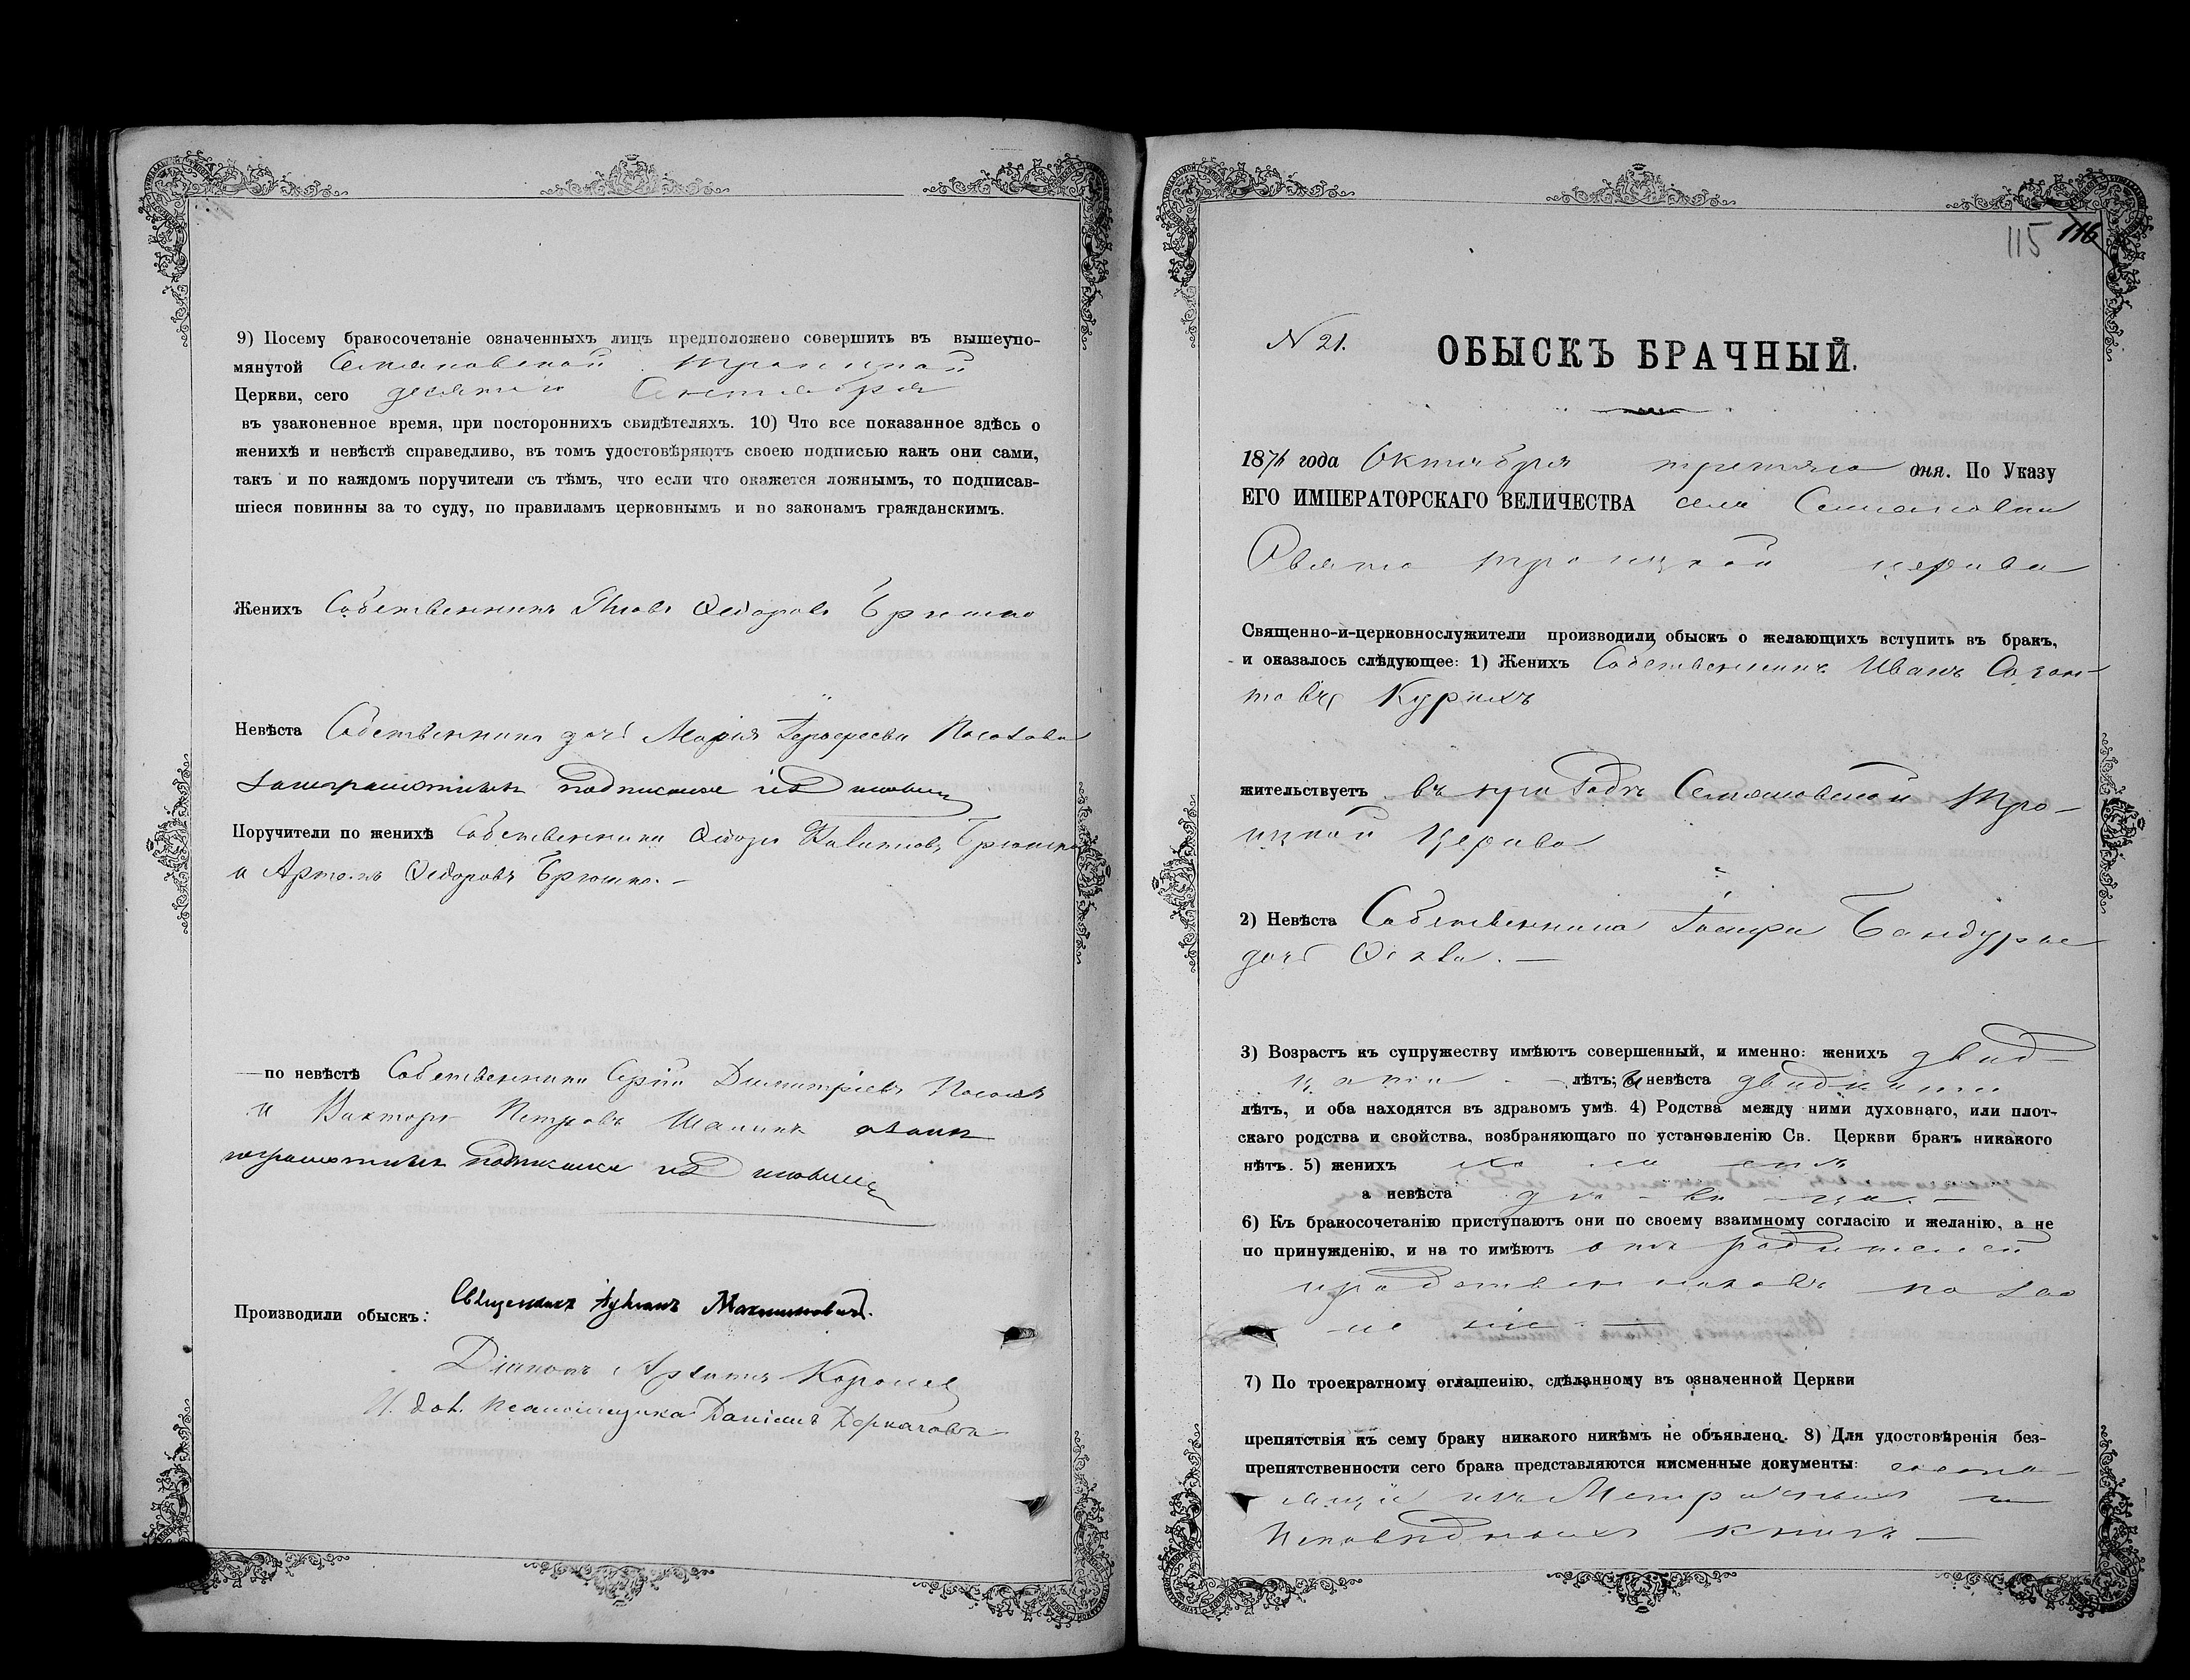 9) Посему бракосочетаніе означенныхъ лицъ предположено совершить въ вышеупо-
мянутой Семяновской Троицкой
Церкви, сего
въ узаконенное время, при постороннихъ свидѣтеляхъ. 10) Что все показанное здѣсь о
женихѣ и невѣстѣ справедливо, въ томъ удостовѣряютъ своею подписью какъ они сами,
такъ и по каждомъ поручители съ тѣмъ, что если что окажется ложнымъ, то подписав-
шіеся повинны за то суду, по правиламъ церковнымъ и по законамъ гражданскимъ.
Женихъ Собственникъ Яковъ Ѳедоровъ
Невѣста Собственника дочь Марія
подписался
Поручители по женихѣ Собственники Ѳедоръ
и Артемъ Ѳедоровъ Брюшко. —
— по невѣстѣ Собственники Сергій Димитріевъ
и Викторъ Петровъ
неграмотныхъ подписался
Производили обыскъ: Священникъ Максимовичъ.
Діаконъ Королев
И. дол. псаломщика Даніилъ Деркачовъ
115 116
N 21.
ОБЫСКЪ БРАЧНЫЙ.
187 года Октября третяго дня. По Указу
ЕГО ИМПЕРАТОРСКАГО ВЕЛИЧЕСТВА села Семяновки
Свято Троицкой церкви
Священно-и-церковнослужители производили обыскъ о желающихъ вступить въ бракъ,
и оказалось слѣдующее: 1) Женихъ Собственникъ Иванъ Созон-
товъ
жительствуетъ въ приходѣ Семяновской Тро-
ицкой Церкви
2) Невѣста Собственника Іосифа Бандурке
дочь Ѳекла. —
3) Возрастъ къ супружеству имѣютъ совершенный, и именно: женихъ двад-
цати - лѣтъ; и невѣста двадцати
лѣтъ, и оба находятся въ здравомъ умѣ. 4) Родства между ними духовнаго, или плот-
скаго родства и свойства, возбраняющаго по установленію Св. Церкви бракъ никакого
нѣтъ. 5) женихъ холостъ
а невѣста дѣвица. —
6) Къ бракосочетанію приступаютъ они по своему взаимному согласію и желанію, а не
по принужденію, и на то имѣютъ отъ родителей
и родственниковъ позво
леніе. —
7) По троекратному оглашенію, сдѣланному въ означенной Церкви
препятствія къ сему браку никакого никѣмъ не объявлено. 8) Для удостовѣренія без-
препятственности сего брака представляются письменные документы: состо-
ящіе изъ Метричныхъ и
Исповѣдныхъ книгъ —